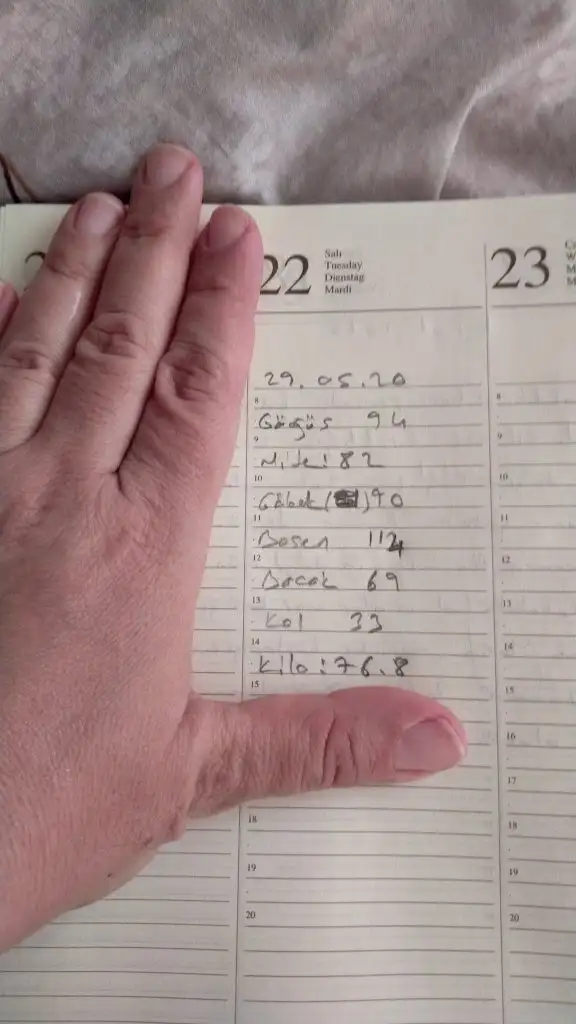 22
Salı
Tuesday
Dienstag
Mardi
23
29.05.20
8
Göğüs 94
9
Mide: 82
10
Göbek ( ) 90
11
Basen 112
12
Bacak 69
13
Kol 33
14
Kilo: 76.8
15
18
19
20
8
9
10
11
12
13
14
15
16
17
18
19
20